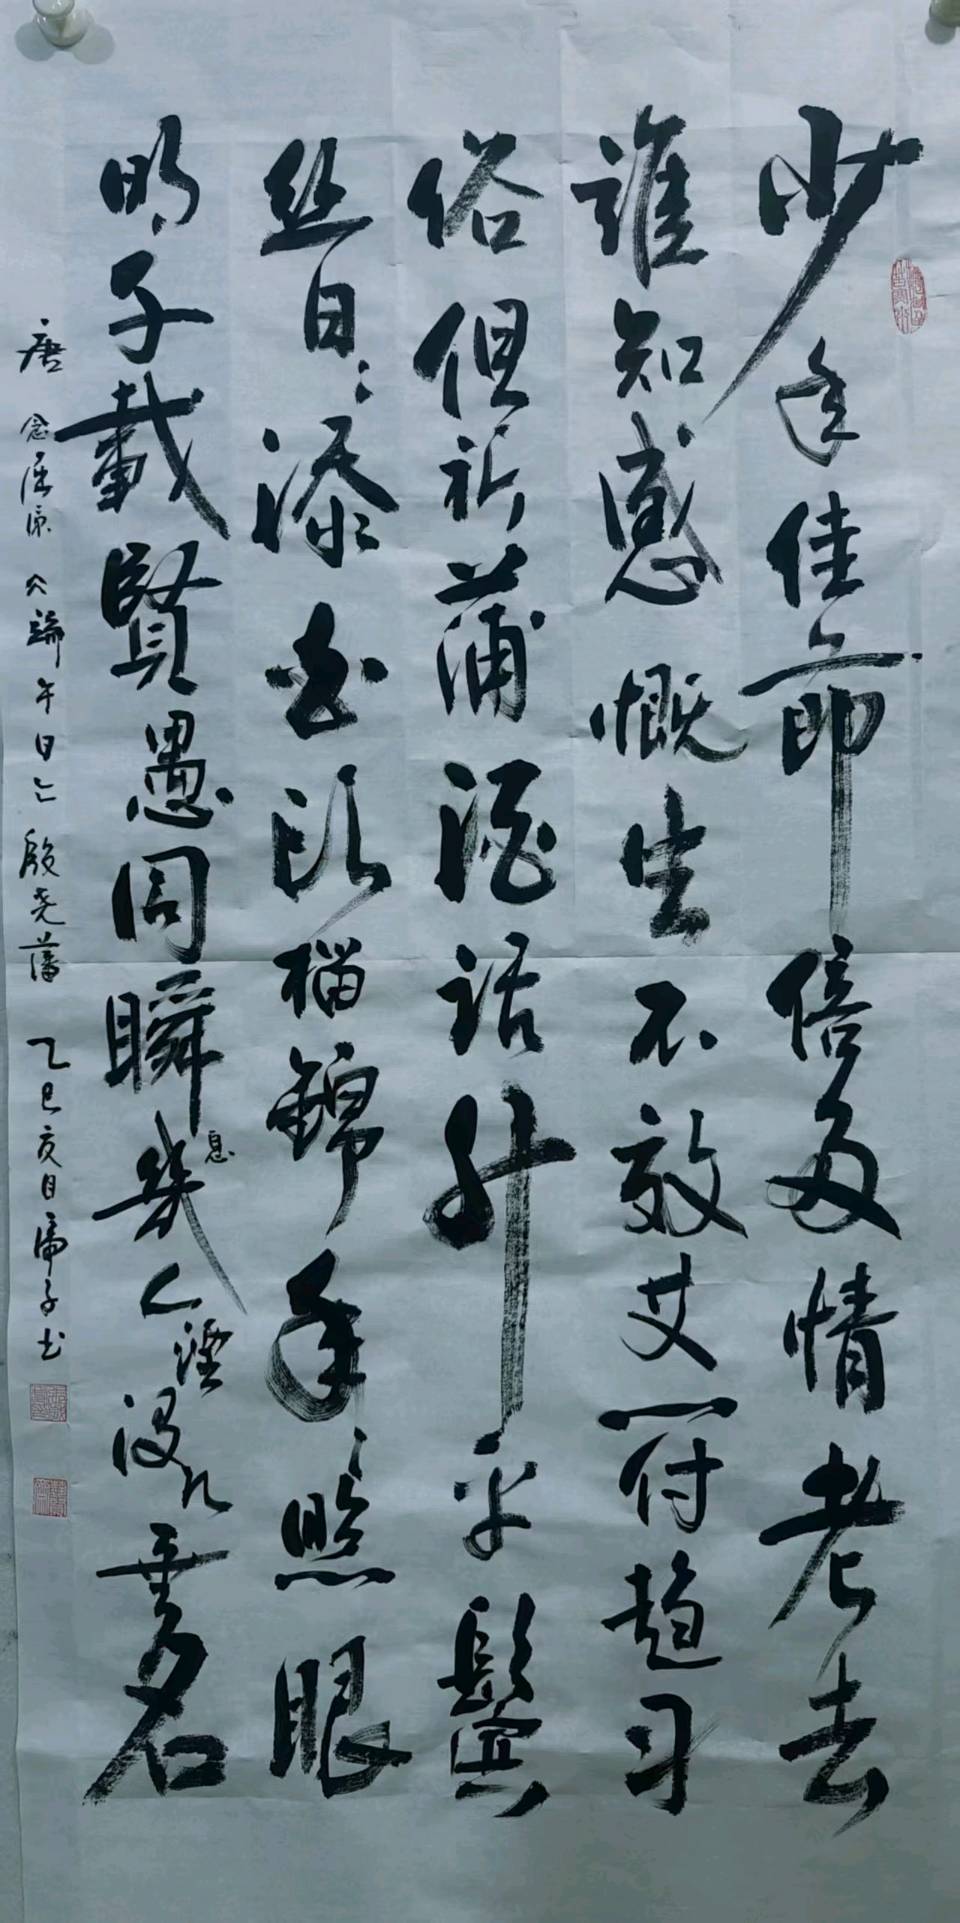 少年佳節倍多情老去
誰知感慨生不效艾符趋习
俗但祈蒲酒话升平鬓
丝日日添白头榴錦年年照眼
明子載賢愚同瞬息幾人湮没几垂名
唐 念屈原《端午日》殷尧藩 乙巳夏日 子书